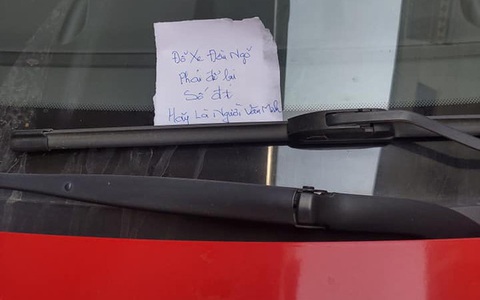 Đỗ Xe Đầu Ngõ
Phải để lại
Số đt
Hãy Là Người Văn Minh